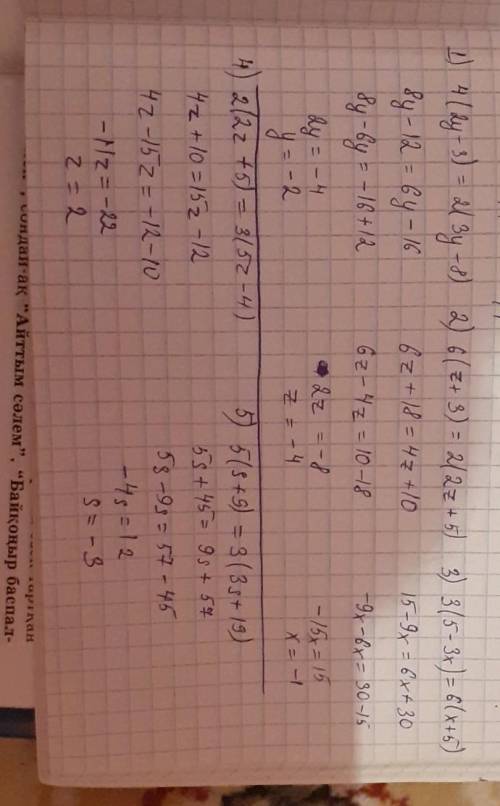 1) 4(2y-3)=2(3y-8) 2) 6(z+3)=2(2z+5) 3) 3(5-3x)=6(x+5)
8y-12=6y-16 6z+18=4z+10 15-9x=6x+30
8y-6y=-16+12 6z-4z=10-18 -9x-6x=30-15
2y=-4 2z=-8 -15x=15
y=-2 z=-4 x=-1
4) 2(2z+5)=3(5z-4) 5) 5(s+9)=3(3s+19)
4z+10=15z-12 5s+45=9s+57
4z-15z=-12-10 5s-9s=57-45
-11z=-22 -4s=12
z=2 s=-3
"Айттым сәлем", "Байқоңыр баспал-